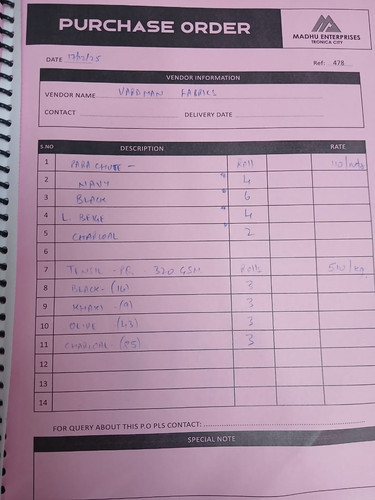 PURCHASE ORDER
MADHU ENTERPRISES
TRONICA CITY
DATE
Ref: 478
VENDOR INFORMATION
VENDOR NAME VARDHMAN FABRICS
CONTACT DELIVERY DATE
S.NO DESCRIPTION RATE
1 PARACHUTE - Roll
2 NAVY 4
3 BLACK 6
4 L. BEIGE 4
5 CHARCOAL 2
6
7 320 GSM Rolls 510/kg
8 BLACK - (16) 3
9 KHAKI (9) 3
10 OLIVE (43) 3
11 CHARCOAL (25) 3
12
13
14
FOR QUERY ABOUT THIS P.O PLS CONTACT:
SPECIAL NOTE